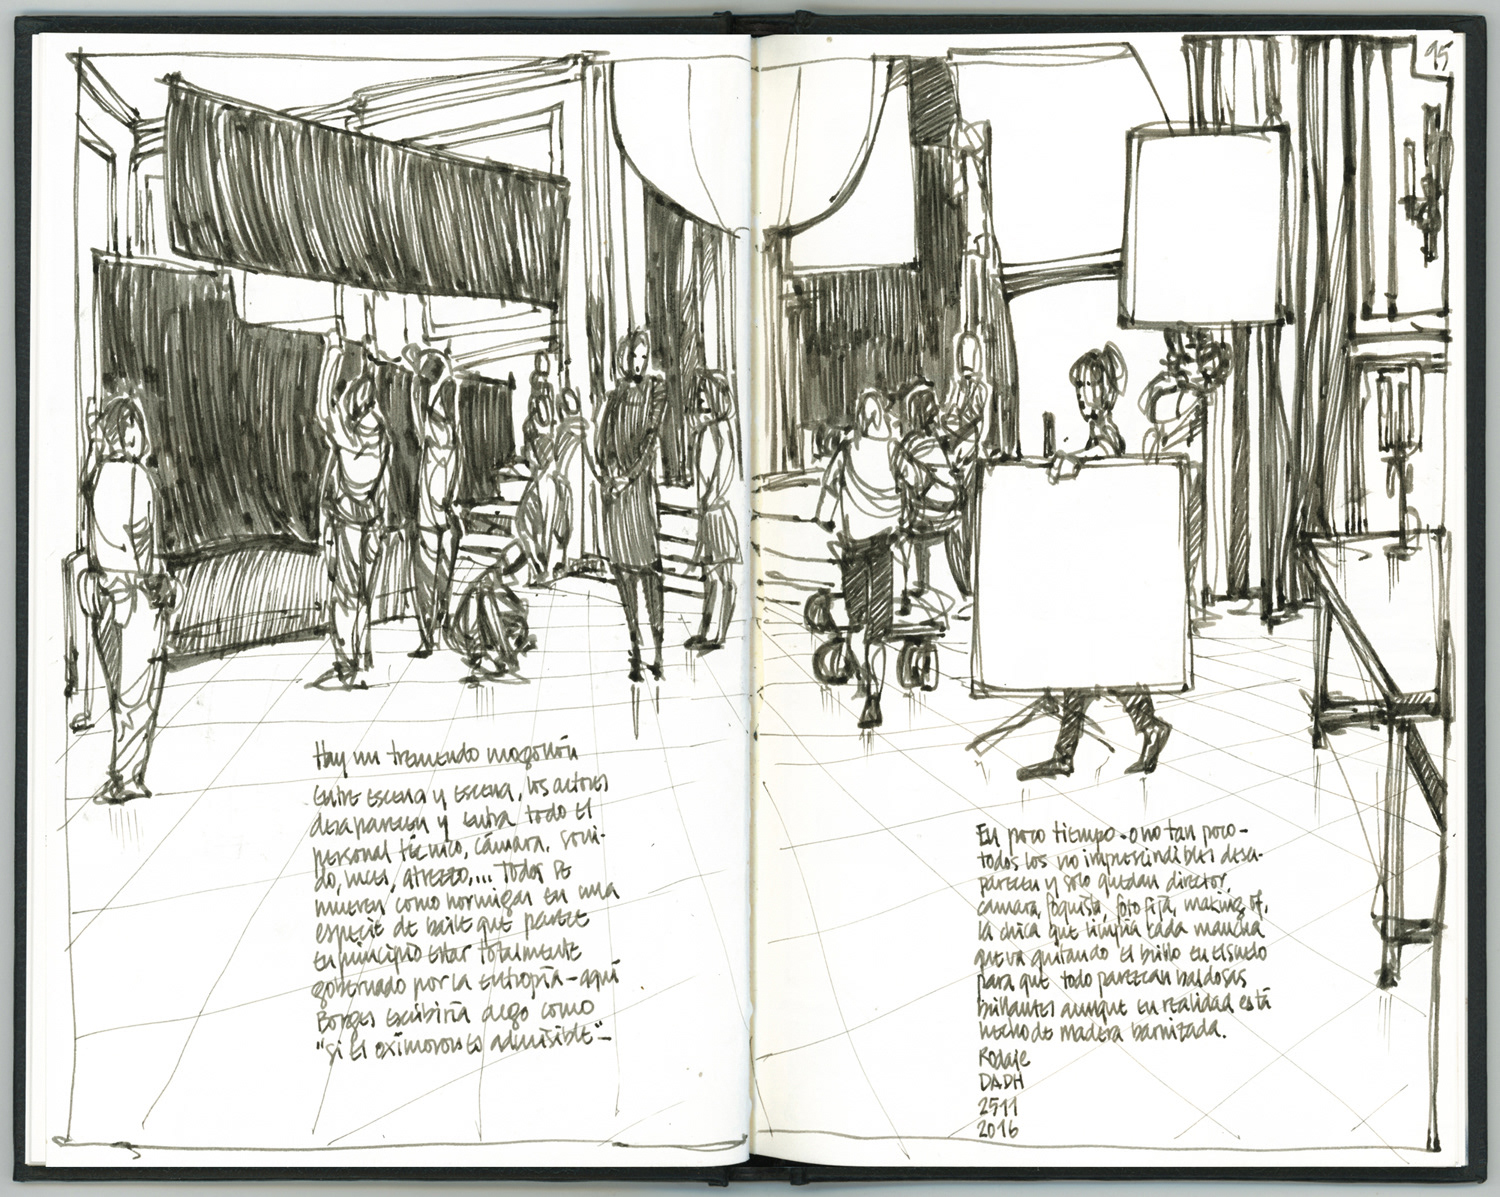 95
Hay un tremendo mogollón
entre escena y escena, los actores
desaparecen y entra todo el
personal técnico, cámara, soni-
do, luces, atrezzo,... Todos se
mueven como hormigas en una
especie de baile que parece
en principio estar totalmente
gobernado por la entropía - aquí
Borges escribiría algo como
"si el oxímoron es admisible"-
En poco tiempo - o no tan poco -
todos los no imprescindibles desa-
parecen y solo quedan director,
cámara, foquista, foto fija, making of,
la chica que limpia cada mancha
que va quitando el brillo en el suelo
para que todo parezcan baldosas
brillantes aunque en realidad está
hecho de madera barnizada.
Rodaje
DADH
2511
2016